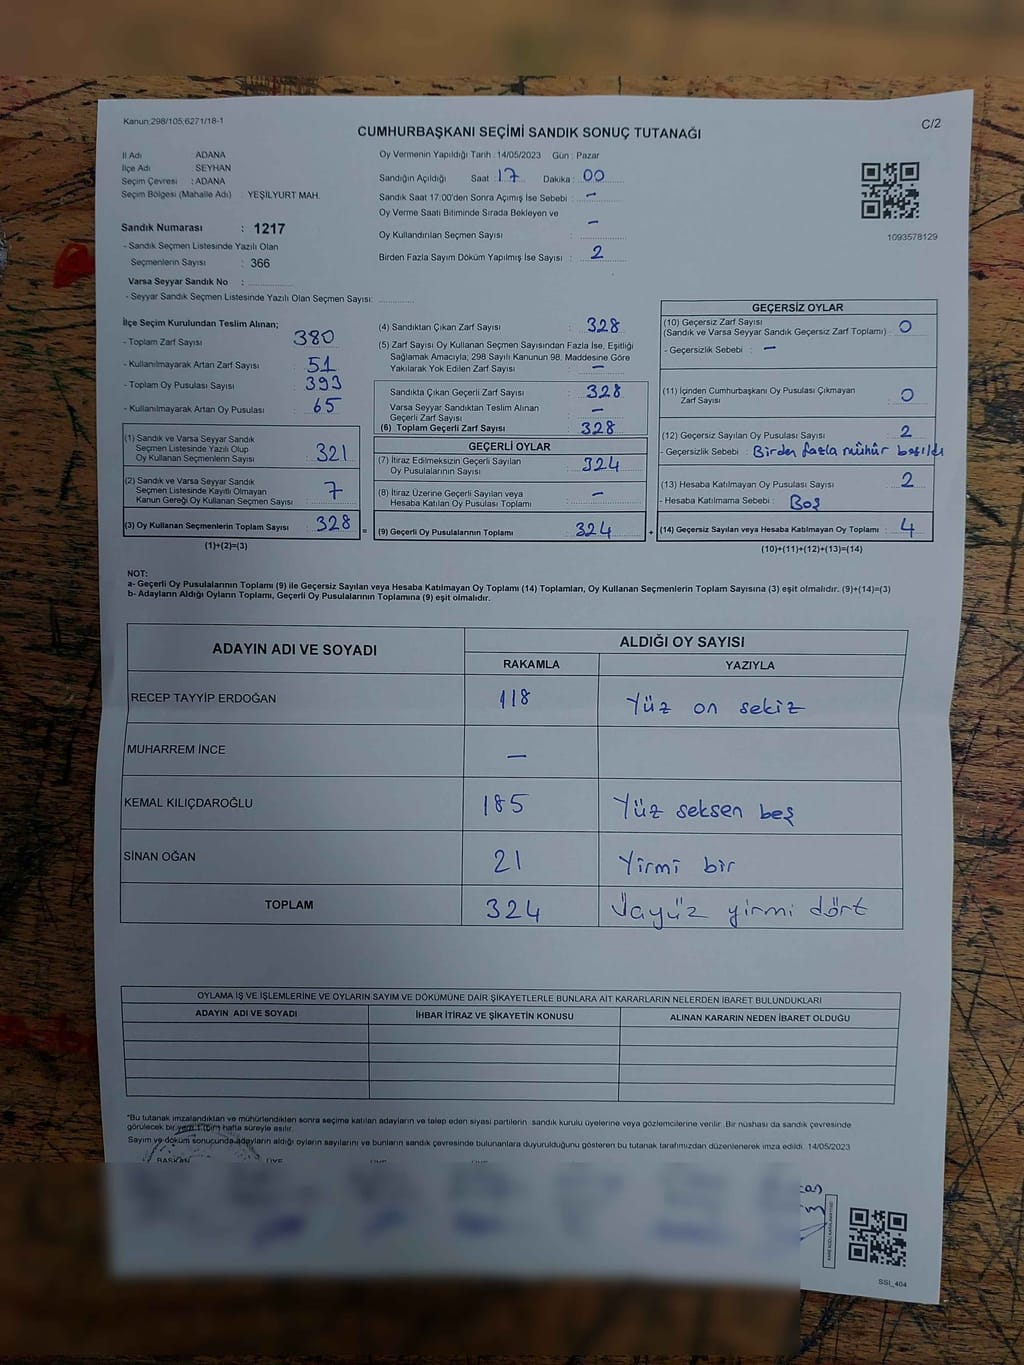 Kanun:298/105;6271/18-1
C/2
CUMHURBAŞKANI SEÇİMİ SANDIK SONUÇ TUTANAĞI
İl Adı : ADANA
İlçe Adı : SEYHAN
Seçim Çevresi : ADANA
Seçim Bölgesi (Mahalle Adı) : YEŞİLYURT MAH.
Sandık Numarası : 1217
- Sandık Seçmen Listesinde Yazılı Olan
Seçmenlerin Sayısı : 366
Varsa Seyyar Sandık No :
- Seyyar Sandık Seçmen Listesinde Yazılı Olan Seçmen Sayısı:
Oy Vermenin Yapıldığı Tarih : 14/05/2023 Gün : Pazar
Sandığın Açıldığı Saat : 17 Dakika : 00
Sandık Saat 17:00'den Sonra Açımış İse Sebebi : -
Oy Verme Saati Bitiminde Sırada Bekleyen ve
Oy Kullandırılan Seçmen Sayısı : -
Birden Fazla Sayım Döküm Yapılmış İse Sayısı : 2
1093578129
İlçe Seçim Kurulundan Teslim Alınan;
- Toplam Zarf Sayısı : 380
- Kullanılmayarak Artan Zarf Sayısı : 51
- Toplam Oy Pusulası Sayısı : 393
- Kullanılmayarak Artan Oy Pusulası : 65
(1) Sandık ve Varsa Seyyar Sandık
Seçmen Listesinde Yazılı Olup
Oy Kullanan Seçmenlerin Sayısı : 321
(2) Sandık ve Varsa Seyyar Sandık
Seçmen Listesinde Kayıtlı Olmayan
Kanun Gereği Oy Kullanan Seçmen Sayısı : 7
(3) Oy Kullanan Seçmenlerin Toplam Sayısı : 328 =
(1)+(2)=(3)
(4) Sandıktan Çıkan Zarf Sayısı : 328
(5) Zarf Sayısı Oy Kullanan Seçmen Sayısından Fazla İse, Eşitliği
Sağlamak Amacıyla; 298 Sayılı Kanunun 98. Maddesine Göre
Yakılarak Yok Edilen Zarf Sayısı : -
Sandıkta Çıkan Geçerli Zarf Sayısı : 328
Varsa Seyyar Sandıktan Teslim Alınan
Geçerli Zarf Sayısı : -
(6) Toplam Geçerli Zarf Sayısı : 328
GEÇERLİ OYLAR
(7) İtiraz Edilmeksizin Geçerli Sayılan
Oy Pusulalarının Sayısı : 324
(8) İtiraz Üzerine Geçerli Sayılan veya
Hesaba Katılan Oy Pusulası Toplamı : -
(9) Geçerli Oy Pusulalarının Toplamı : 324 +
GEÇERSİZ OYLAR
(10) Geçersiz Zarf Sayısı
(Sandık ve Varsa Seyyar Sandık Geçersiz Zarf Toplamı) : 0
- Geçersizlik Sebebi : -
(11) İçinden Cumhurbaşkanı Oy Pusulası Çıkmayan
Zarf Sayısı : 0
(12) Geçersiz Sayılan Oy Pusulası Sayısı : 2
- Geçersizlik Sebebi : Birden fazla mühür basıldı
(13) Hesaba Katılmayan Oy Pusulası Sayısı : 2
- Hesaba Katılmama Sebebi : Boş
(14) Geçersiz Sayılan veya Hesaba Katılmayan Oy Toplamı : 4
(10)+(11)+(12)+(13)=(14)
NOT:
a- Geçerli Oy Pusulalarının Toplamı (9) ile Geçersiz Sayılan veya Hesaba Katılmayan Oy Toplamı (14) Toplamları, Oy Kullanan Seçmenlerin Toplam Sayısına (3) eşit olmalıdır. (9)+(14)=(3)
b- Adayların Aldığı Oyların Toplamı, Geçerli Oy Pusulalarının Toplamına (9) eşit olmalıdır.
ADAYIN ADI VE SOYADI ALDIĞI OY SAYISI
RAKAMLA YAZIYLA
RECEP TAYYİP ERDOĞAN 118 Yüz on sekiz
MUHARREM İNCE -
KEMAL KILIÇDAROĞLU 185 Yüz seksen beş
SİNAN OĞAN 21 Yirmi bir
TOPLAM 324 Üçyüz yirmi dört
OYLAMA İŞ VE İŞLEMLERİNE VE OYLARIN SAYIM VE DÖKÜMÜNE DAİR ŞİKAYETLERLE BUNLARA AİT KARARLARIN NELERDEN İBARET BULUNDUKLARI
ADAYIN ADI VE SOYADI İHBAR İTİRAZ VE ŞİKAYETİN KONUSU ALINAN KARARIN NEDEN İBARET OLDUĞU
*Bu tutanak imzalandıktan ve mühürlendikten sonra seçime katılan adayların ve talep eden siyasi partilerin sandık kurulu üyelerine veya gözlemcilerine verilir. Bir nüshası da sandık çevresinde
görülecek bir yere 1 (bir) hafta süreyle asılır.
Sayım ve döküm sonucunda adayların aldığı oyların sayılarını ve bunların sandık çevresinde bulunanlara duyurulduğunu gösteren bu tutanak tarafımızdan düzenlenerek imza edildi. 14/05/2023
BAŞKAN ÜYE ÜYE ÜYE
SSI_404